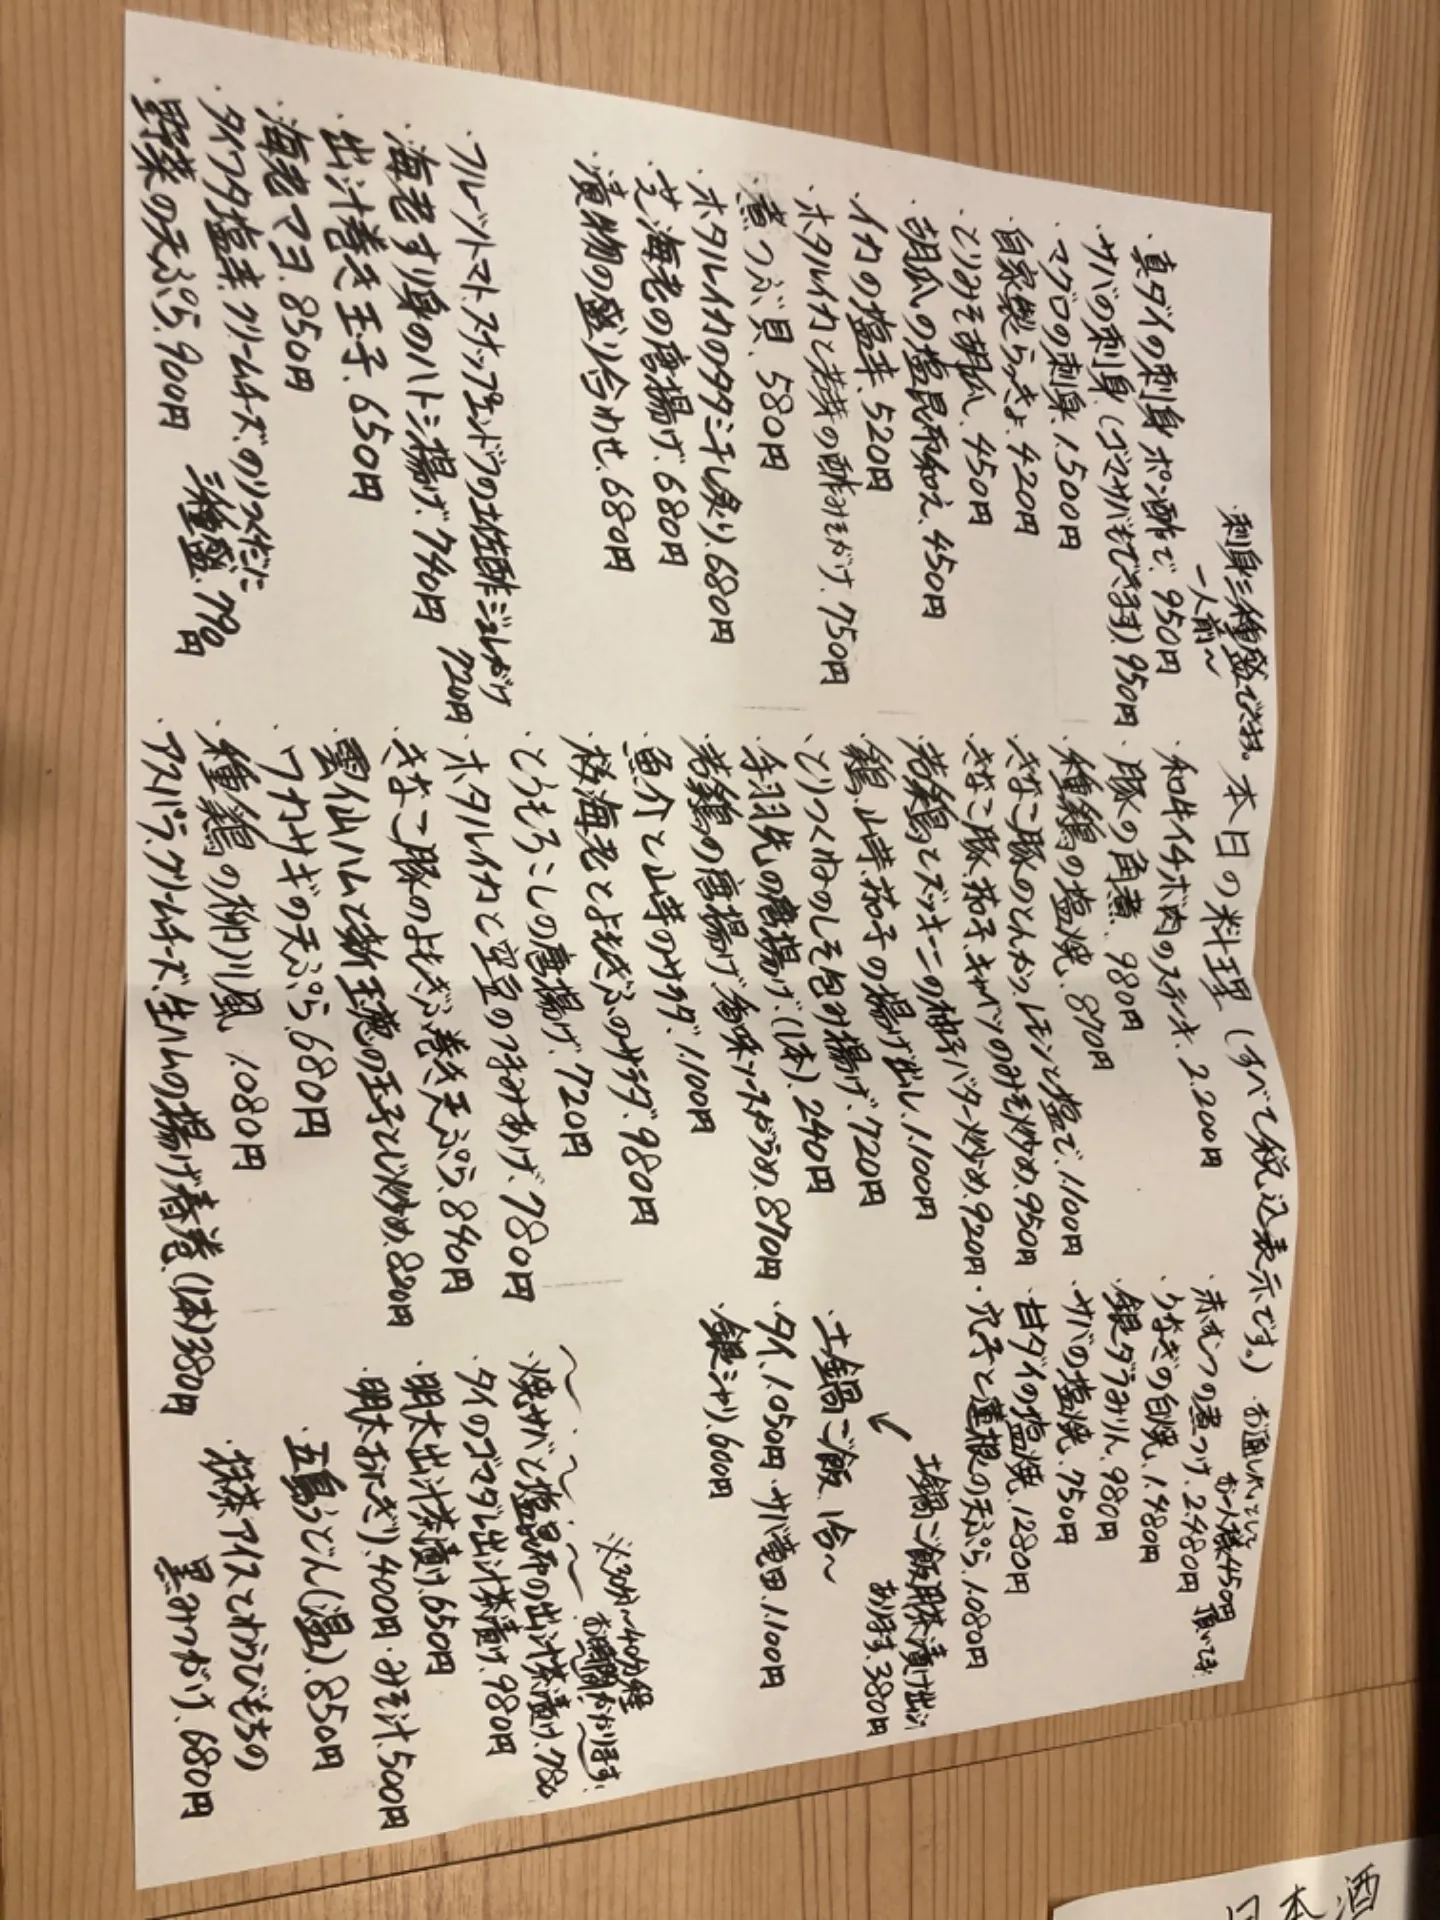 刺身三種盛できます。
一人前〜
本日の料理（すべて税込表示です。）
お通し代として
お一人様450円
頂いてます。
・真ダイの刺身 ポン酢で、950円
・サバの刺身（ゴマサバもできます）、950円
・マグロの刺身、1.500円
・自家製らっきょ、420円
・とりみそ胡瓜、450円
・胡瓜の塩昆布和え、450円
・イカの塩辛、520円
・ホタルイカと若芽の酢みそがけ、750円
・煮つぶ貝、580円
・ホタルイカのタタミ干し炙り、680円
・芝海老の唐揚げ、680円
・漬物の盛り合わせ、680円
・フルーツトマト、スナップエンドウの土佐酢ジュレがけ
720円
・海老すり身のハトシ揚げ、740円
・出汁巻き玉子、650円
・海老マヨ、850円
・タイワタ塩辛、クリームチーズ、のりつくだに
三種盛、790円
・野菜の天ぷら、900円
・和牛イチボ肉のステーキ、2.200円
・豚の角煮、980円
・種鶏の塩焼、870円
・きなこ豚のとんかつ、レモンと塩で、1.100円
・きなこ豚、茄子、キャベツのみそ炒め、950円
・若鶏とズッキーニの柚子バター炒め、920円
・鶏、山芋、茄子の揚げ出し、1.100円
・とりつくねのしそ包み揚げ、720円
・手羽先の唐揚げ、（1本）、240円
・若鶏の唐揚げ香味ソースがらめ、870円
・魚介と山芋のサラダ、1.100円
・桜海老とよもぎふのサラダ、980円
・とうもろこしの唐揚げ、720円
・ホタルイカと空豆のつまみあげ、780円
・きなこ豚のよもぎふ巻き天ぷら、840円
・雲仙ハムと新玉葱の玉子とじ炒め、820円
・ワカサギの天ぷら、680円
・種鶏の柳川風 1.080円
・アスパラ、クリームチーズ、生ハムの揚げ春巻（1本）380円
・赤むつの煮つけ、2.480円
・うなぎの白焼、1.480円
・銀ダラみりん、980円
・サバの塩焼、750円
・甘ダイの塩焼、1.280円
・穴子と蓮根の天ぷら、1.080円
土鍋ご飯用茶漬け出汁
あります、380円
土鍋ご飯 1合〜
・タイ、1.050円・サバ竜田、1.100円
・銀シャリ、600円
※30分〜40分程
お時間かかります。
・焼サバと塩昆布の出汁茶漬け、780
・タイのゴマダレ出汁茶漬け、980円
・明太出汁茶漬け、650円
・明太おにぎり、400円・みそ汁、500円
・五島うどん（温）、850円
・抹茶アイスとわらびもちの
黒みつがけ、680円
日本酒